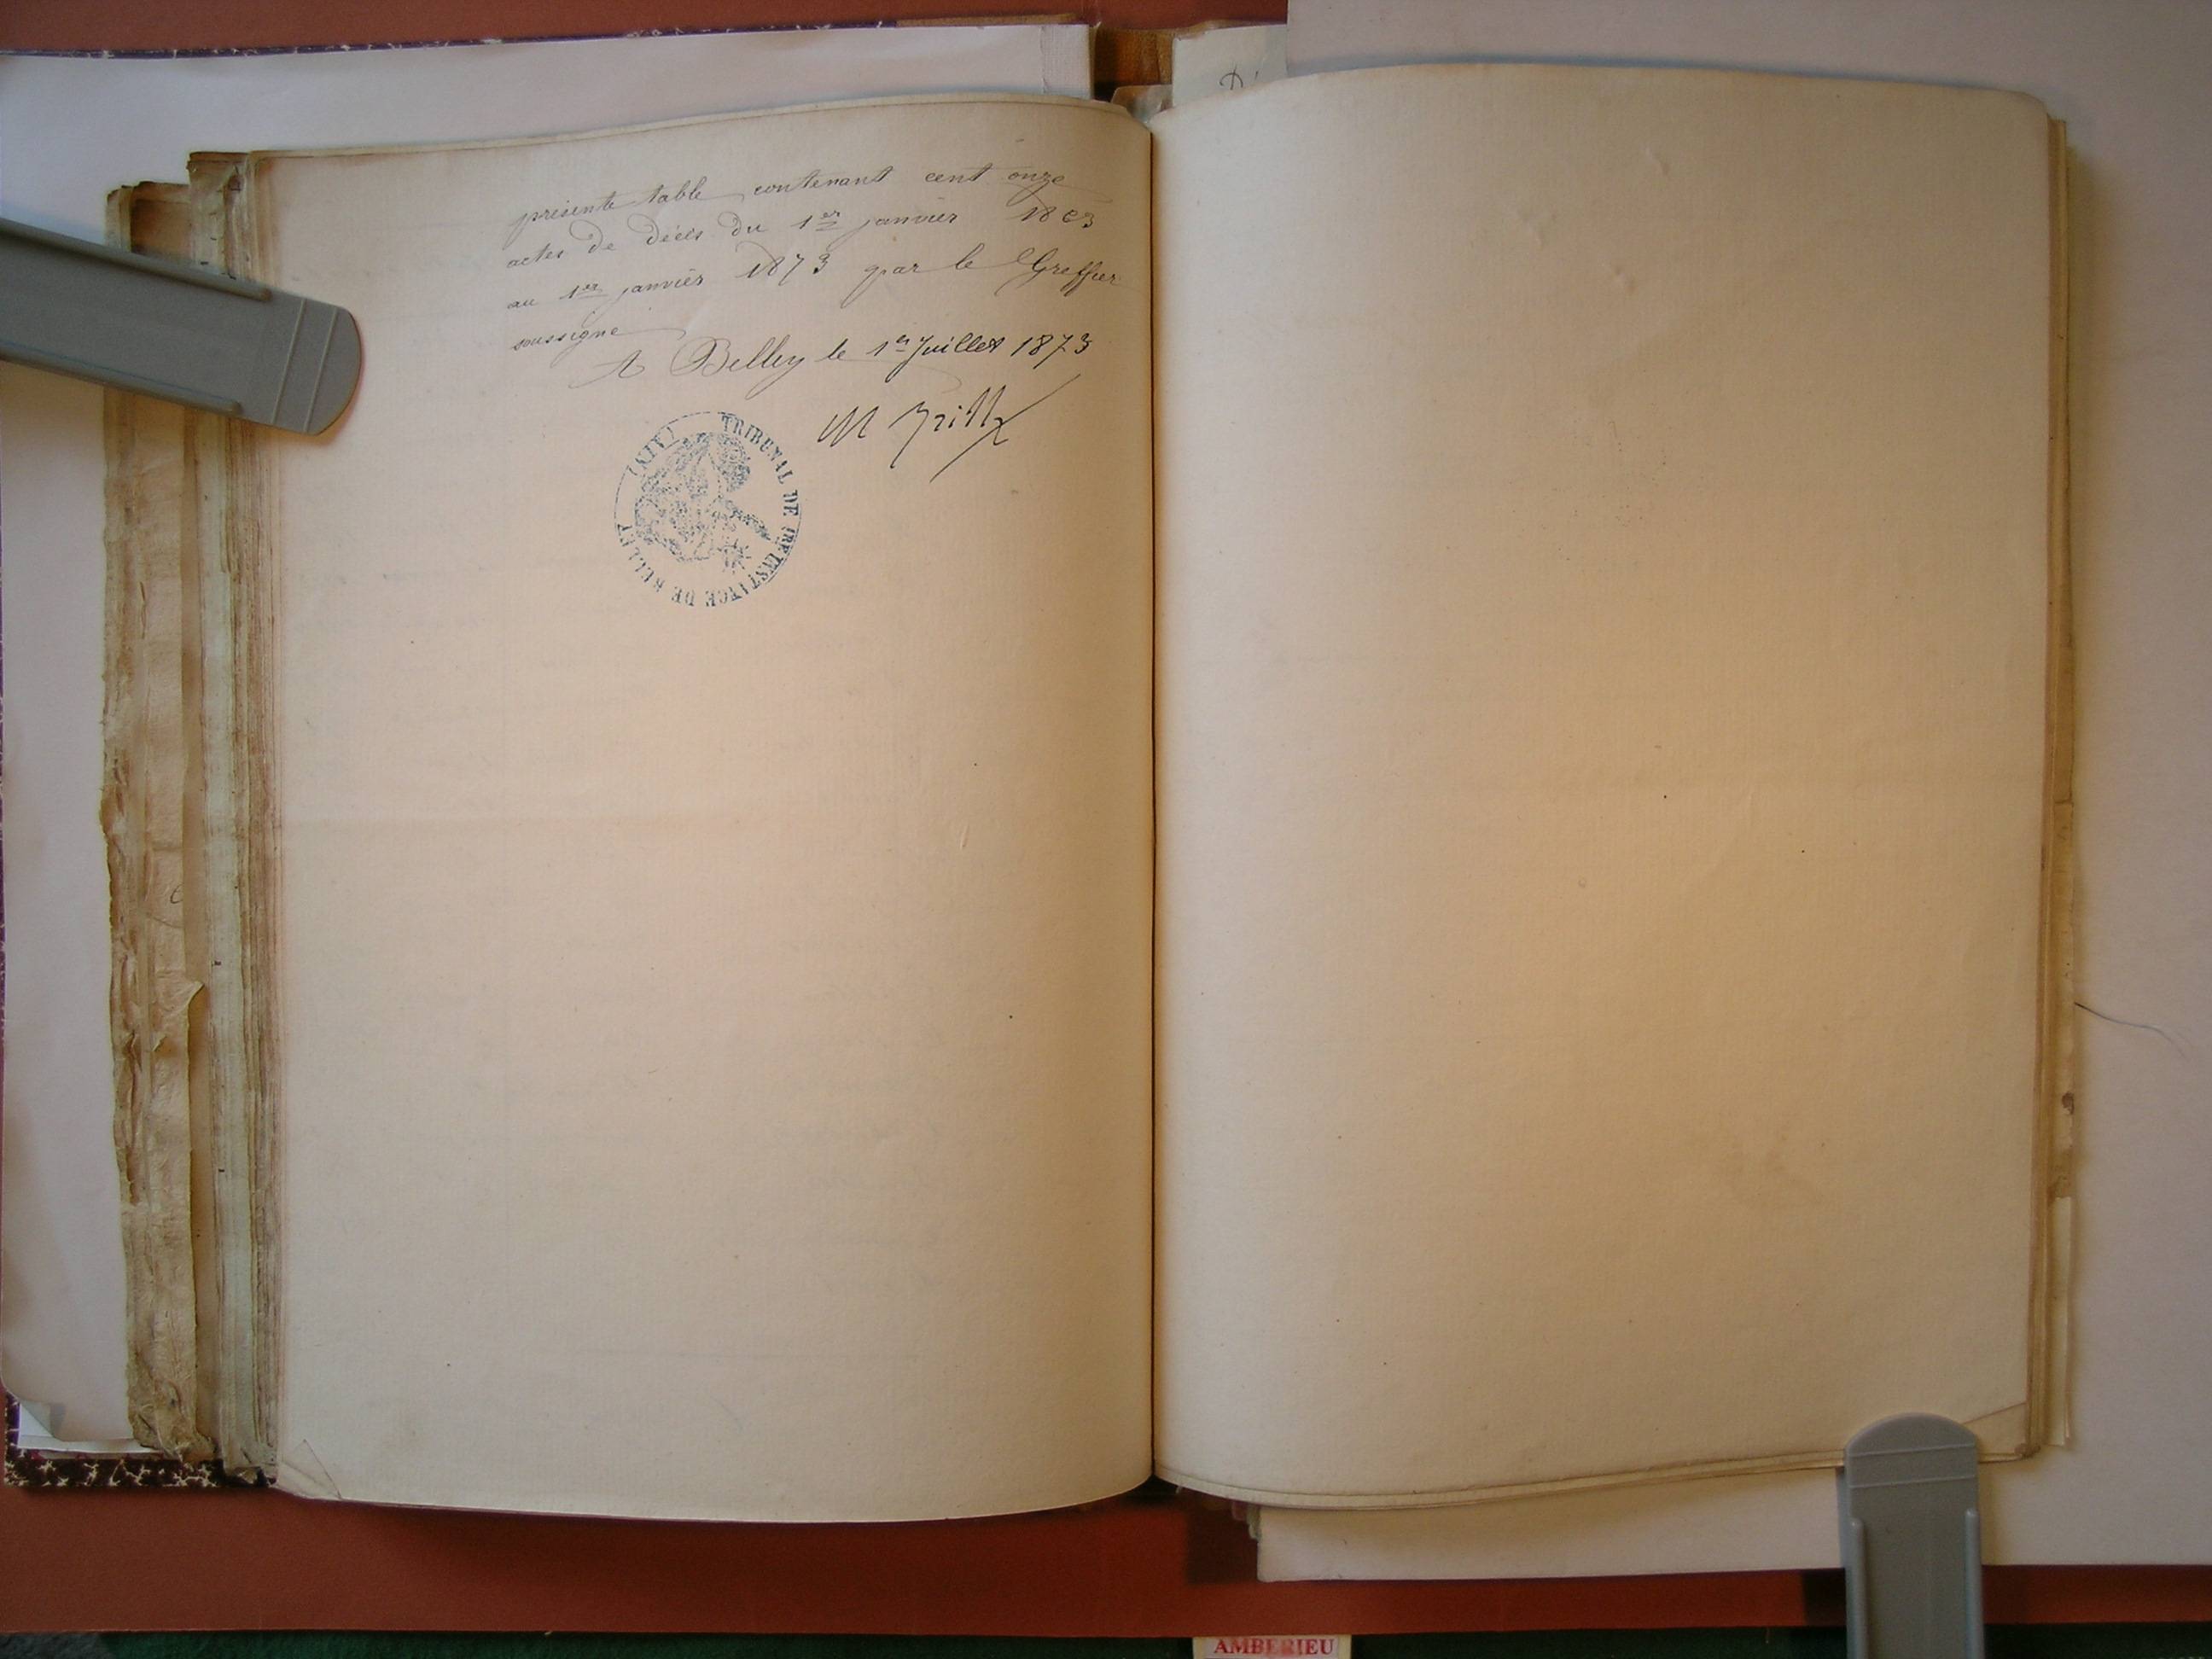 présente table contenant cent onze
actes de décès du 1er janvier 1863
au 1er janvier 1873 par le Greffier
soussigné
A Belley le 1er Juillet 1873
TRIBUNAL DE 1RE INSTANCE DE BELLEY (AIN)
AMBERIEU